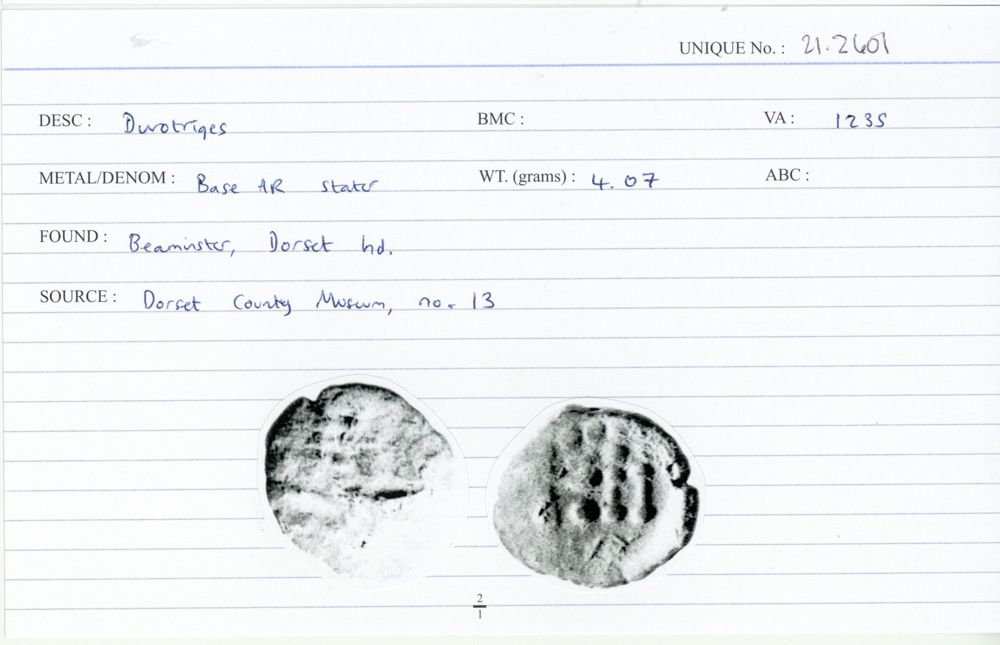 UNIQUE No. : 21.2601
DESC : Durotriges BMC : VA : 1235
METAL/DENOM : Base AR stater WT. (grams) : 4.07 ABC :
FOUND : Beaminster, Dorset hd.
SOURCE : Dorset County Museum, no. 13
2
1